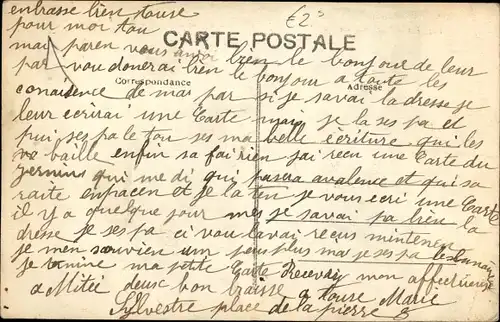 enbrasse bien touse
pour moi tou £2
CARTE POSTALE
mai paren vous anvoi bien le bonjour de leur
par vou donerai bien le bonjour a toute les
Correspondance Adresse
conaisence de mai par si je savai la dresse je
leur ecrirai une Carte mai je la ses pa et
pui ses pa le tou ses ma belle écriture qui les
baille enfin sa fai rien jai recu une Carte du
qui me di qui pasera a valence et qui sa
raite en pacen et je la ten je vous ecri une Carte
il y a quelque jour mes je savai pa bien la
dresse je ses pa ci vou lavai recus mintenen
je men souvien um peu plus mai je ses pa
je termine ma petite Carte Recevez mon affectueuse
a Mitée deuse bon baisse a touse Marie
Sylvestre place de la pierre 8